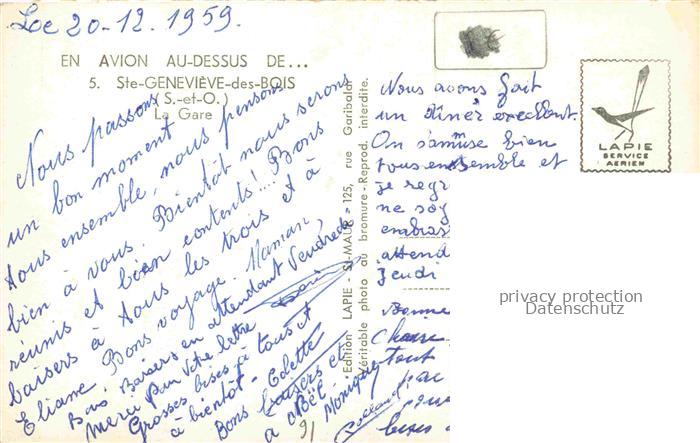 Le 20-12.1959.
EN AVION AU-DESSUS DE...
5. Ste-GENEVIÈVE-des-BOIS
(S.-et-O.)
La Gare
Nous passons
un bon moment
tous ensemble, nous pensons
bien à vous. Bientôt nous serons
réunis et bien contents!.... Bons
baisers à tous les trois et à
Eliane. Bons voyage. Maman,
Bons Baisers en attendant Vendredi
merci pour votre lettre
Grosses bises à tous et
à bientôt - Odette
Bons baisers et
a
Monique
91
Edition LAPIE St-MAUR - 125, rue Garibaldi
Véritable photo au bromure - Reprod. interdite.
LAPIE
SERVICE
AERIEN
Nous avons fait
un dîner excellent.
On s'amuse bien
tous ensemble et
je regr
ne so
embras
attend
Jeudi
Bonne
tout
privacy protection
Datenschutz